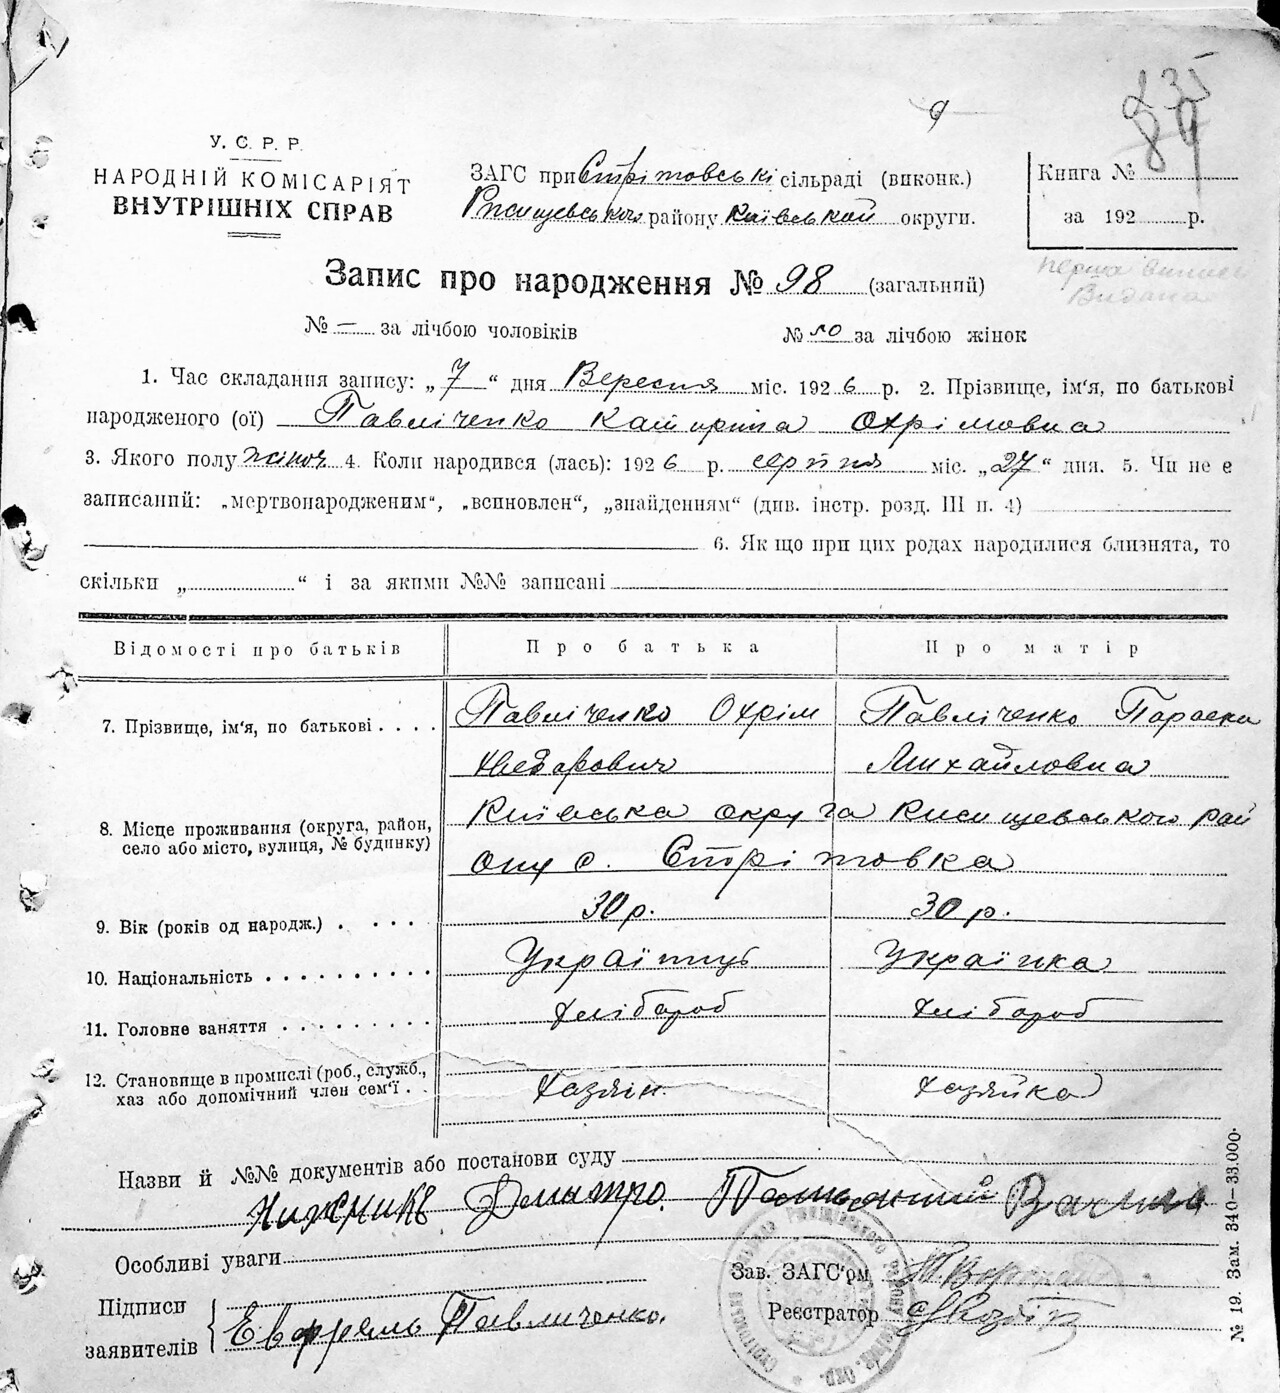 235
89
У. С. Р. Р.
НАРОДНІЙ КОМІСАРІЯТ
ВНУТРІШНІХ СПРАВ
ЗАГС при Стрітовські сільраді (виконк.)
району Київської округи.
Книга №
за 192 р.
перша випись
Видана
Запис про народження № 98 (загальний)
№ — за лічбою чоловіків
№ 50 за лічбою жінок
1. Час складання запису: „7“ дня Вересня міс. 1926 р. 2. Прізвище, ім'я, по батькові
народженого (ої) Павліченко Катирина Охрімовна
3. Якого полу жіноч 4. Коли народився (лась): 1926 р. серпня міс. „27“ дня. 5. Чи не є
записаний: „мертвонародженим“, „всиновлен“, „знайденням“ (див. інстр. розд. III п. 4)
6. Якщо при цих родах народилися близнята, то
скільки „ “ і за якими №№ записані
Відомості про батьків
Про батька
Про матір
7. Прізвище, ім'я, по батькові . . . .
Павліченко Охрім
Павліченко Параска
Михайловна
8. Місце проживання (округа, район,
село або місто, вулиця, № будинку)
Київська округа Ржищевського рай
ону с. Стрітовка
9. Вік (років од народж.) . . . . .
30 р.
30 р.
10. Національність . . . . . . . . . .
Українць
Українка
11. Головне заняття . . . . . . . . .
Хлібароб
Хлібароб
12. Становище в промислі (роб., служб.,
хаз або допомічний член сем'ї . .
Хазяін.
Хазяйка
Назви й №№ документів або постанови суду
Нижникъ Дмитро.
Особливі уваги
Зав. ЗАГС'ом
Підписи
заявителів
Павличенко.
Реєстратор
№ 19. Зам. 340–33.000.